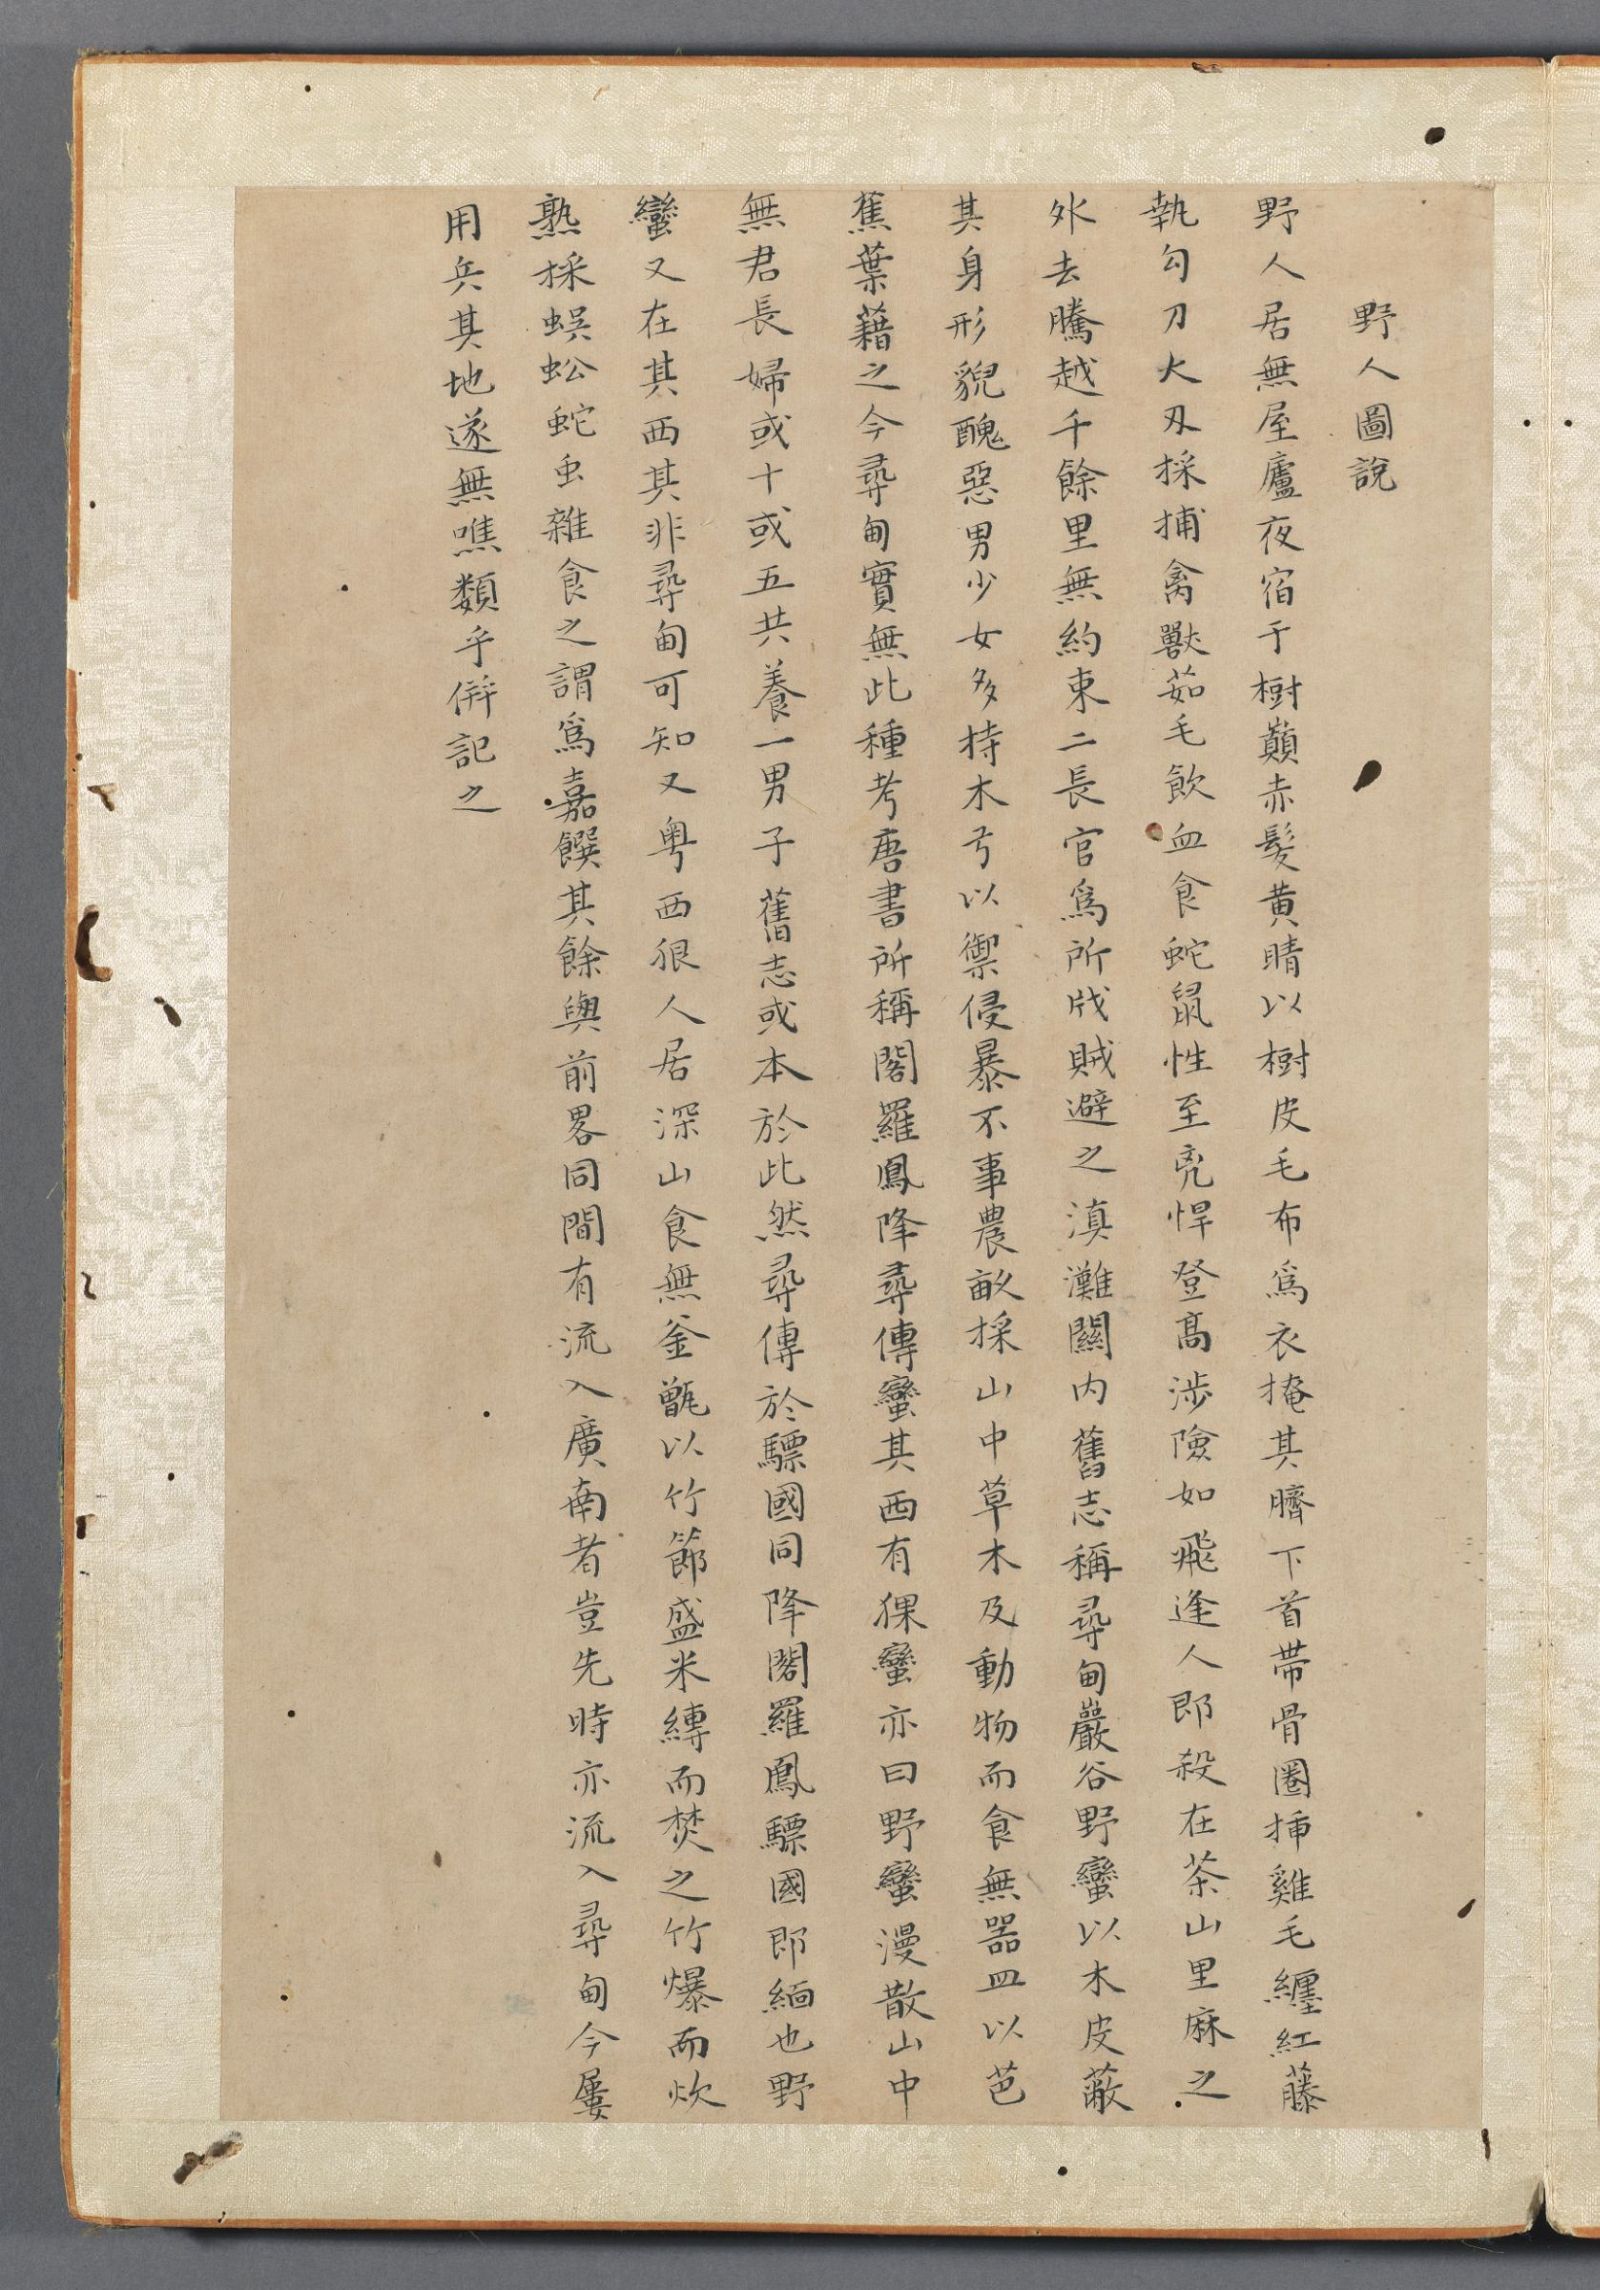 野人圖說
野人居無屋廬夜宿于樹巔赤髮黄睛以樹皮毛布爲衣掩其臍下首帶骨圈揷雞毛纏紅藤
執勾刀大刄採捕禽獸茹毛飲血食蛇鼠性至兇悍登髙涉險如飛逢人即殺在茶山里麻之
外去騰越千餘里無約束二長官爲所戕賊避之滇灘關内舊志稱尋甸巖谷野蠻以木皮蔽
其身形貌醜惡男少女多持木弓以禦侵暴不事農畝採山中草木及動物而食無器皿以芭
蕉葉藉之今尋甸實無此種考唐書所稱閣羅鳳降尋傳蠻其西有猓蠻亦曰野蠻漫散山中
無君長婦或十或五共養一男子舊志或本於此然尋傳於驃國同降閣羅鳳驃國即緬也野
蠻又在其西其非尋甸可知又粤西狠人居深山食無釜甑以竹節盛米縳而焚之竹爆而炊
熟採蜈蚣蛇虫雜食之謂爲嘉饌其餘與前畧同間有流入廣南者豈先時亦流入尋甸今屢
用兵其地遂無噍類乎併記之